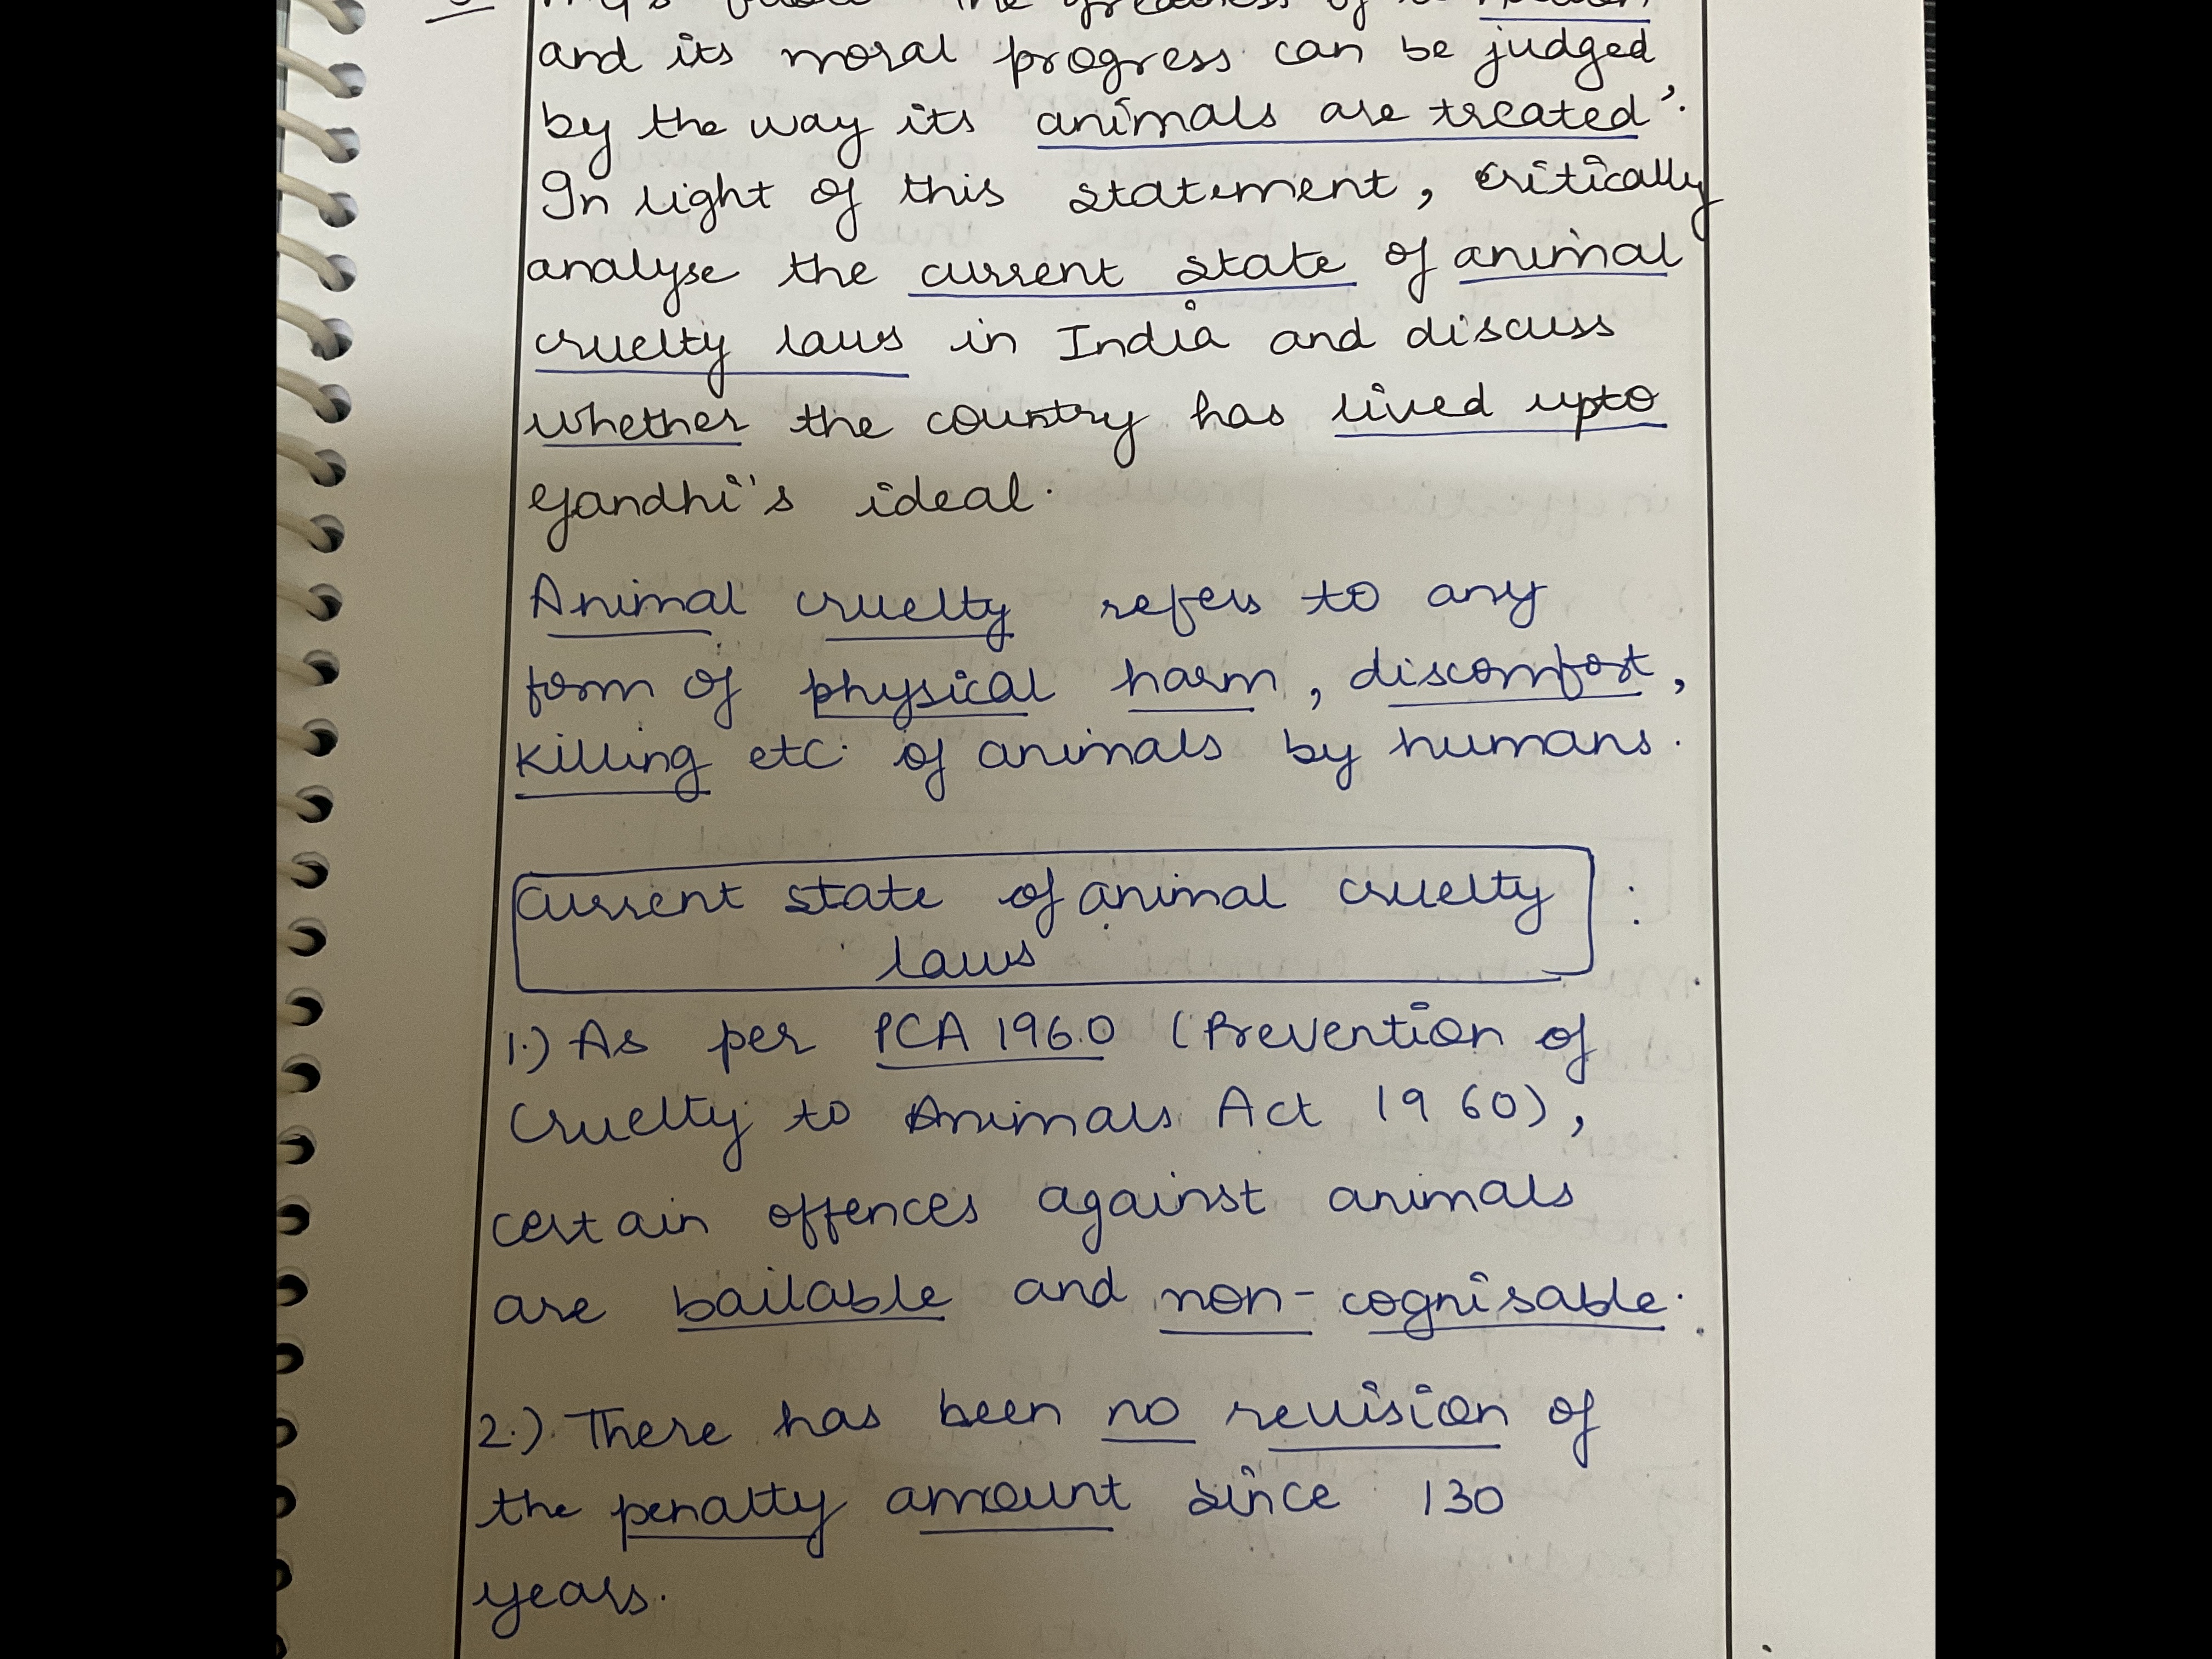 the greatness of a nation
and its moral progress can be judged
by the way its animals are treated'.
In light of this statement, critically
analyse the current state of animal
cruelty laws in India and discuss
whether the country has lived upto
Gandhi's ideal.
Animal cruelty refers to any
form of physical harm, discomfort,
killing etc. of animals by humans.
Current state of animal cruelty :
laws
1.) As per PCA 1960 (Prevention of
Cruelty to Animals Act 1960),
certain offences against animals
are bailable and non-cognisable.
2.) There has been no revision of
the penalty amount since 130
years.